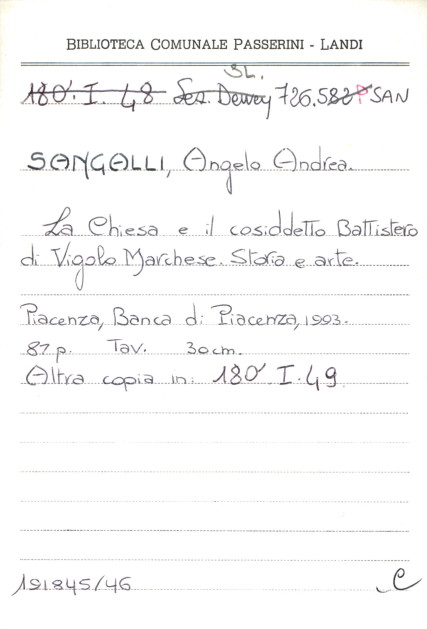 BIBLIOTECA COMUNALE PASSERINI - LANDI
SL.
180'. I. 48 Sez. Dewey 726.582 SAN
SANGALLI, Angelo Andrea.
La Chiesa e il cosiddetto Battistero
di Vigolo Marchese. Storia e arte.
Piacenza, Banca di Piacenza, 1993.
87 p. Tav. 30 cm.
Altra copia in: 180' I. 49
191.845/46
C